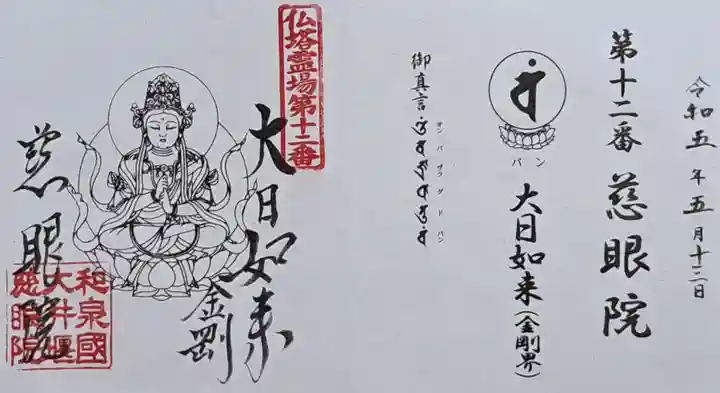 令和五年五月十二日
第十二番 慈眼院
バン
大日如来(金剛界)
御真言
オン バ ザラ ダ ド バン
仏塔霊場第十二番
大日如来
金剛
慈眼院
和泉國
大井堰
慈眼院